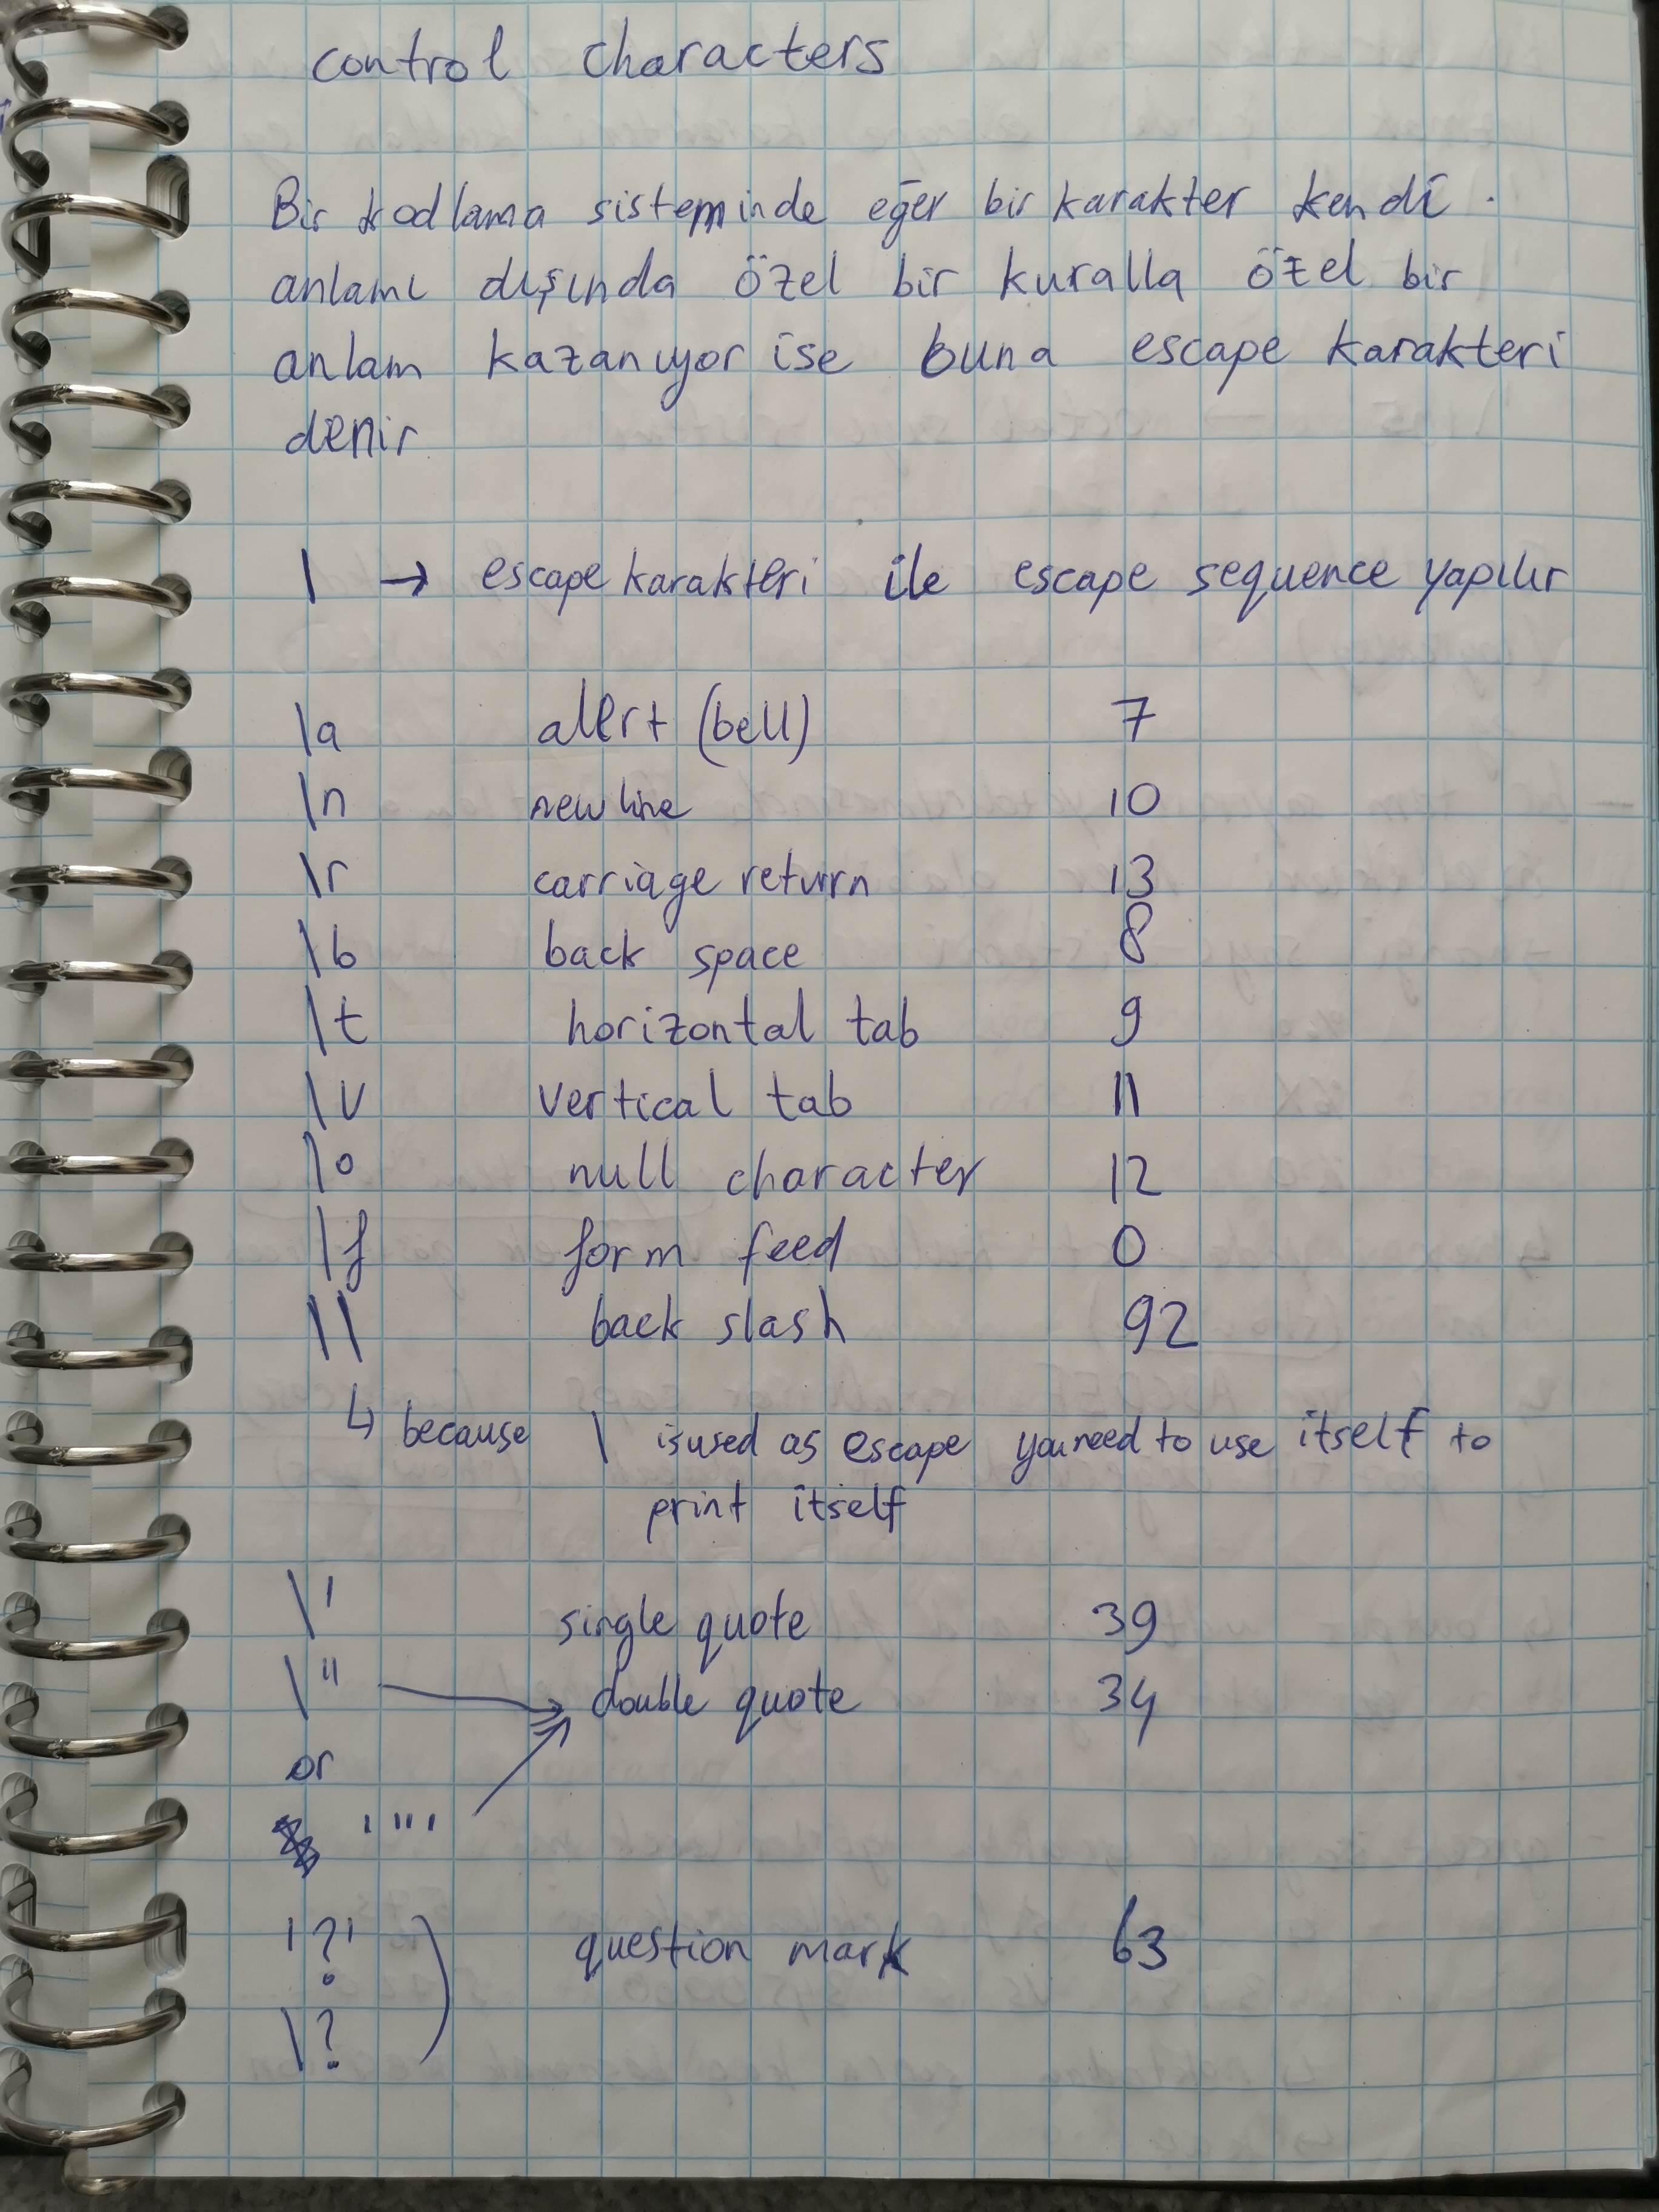 control characters
Bir kodlama sisteminde eğer bir karakter kendi
anlamı dışında özel bir kuralla özel bir
anlam kazanıyor ise buna escape karakteri
denir
\ → escape karakteri ile escape sequence yapılır
\a alert (bell) 7
\n new line 10
\r carriage return 13
\b back space 8
\t horizontal tab 9
\v vertical tab 11
\0 null character 12
\f form feed 0
\\ back slash 92
↳ because \ is used as escape you need to use itself to
print itself
\' single quote 39
\" → double quote 34
or
'"'
'?' question mark 63
\?